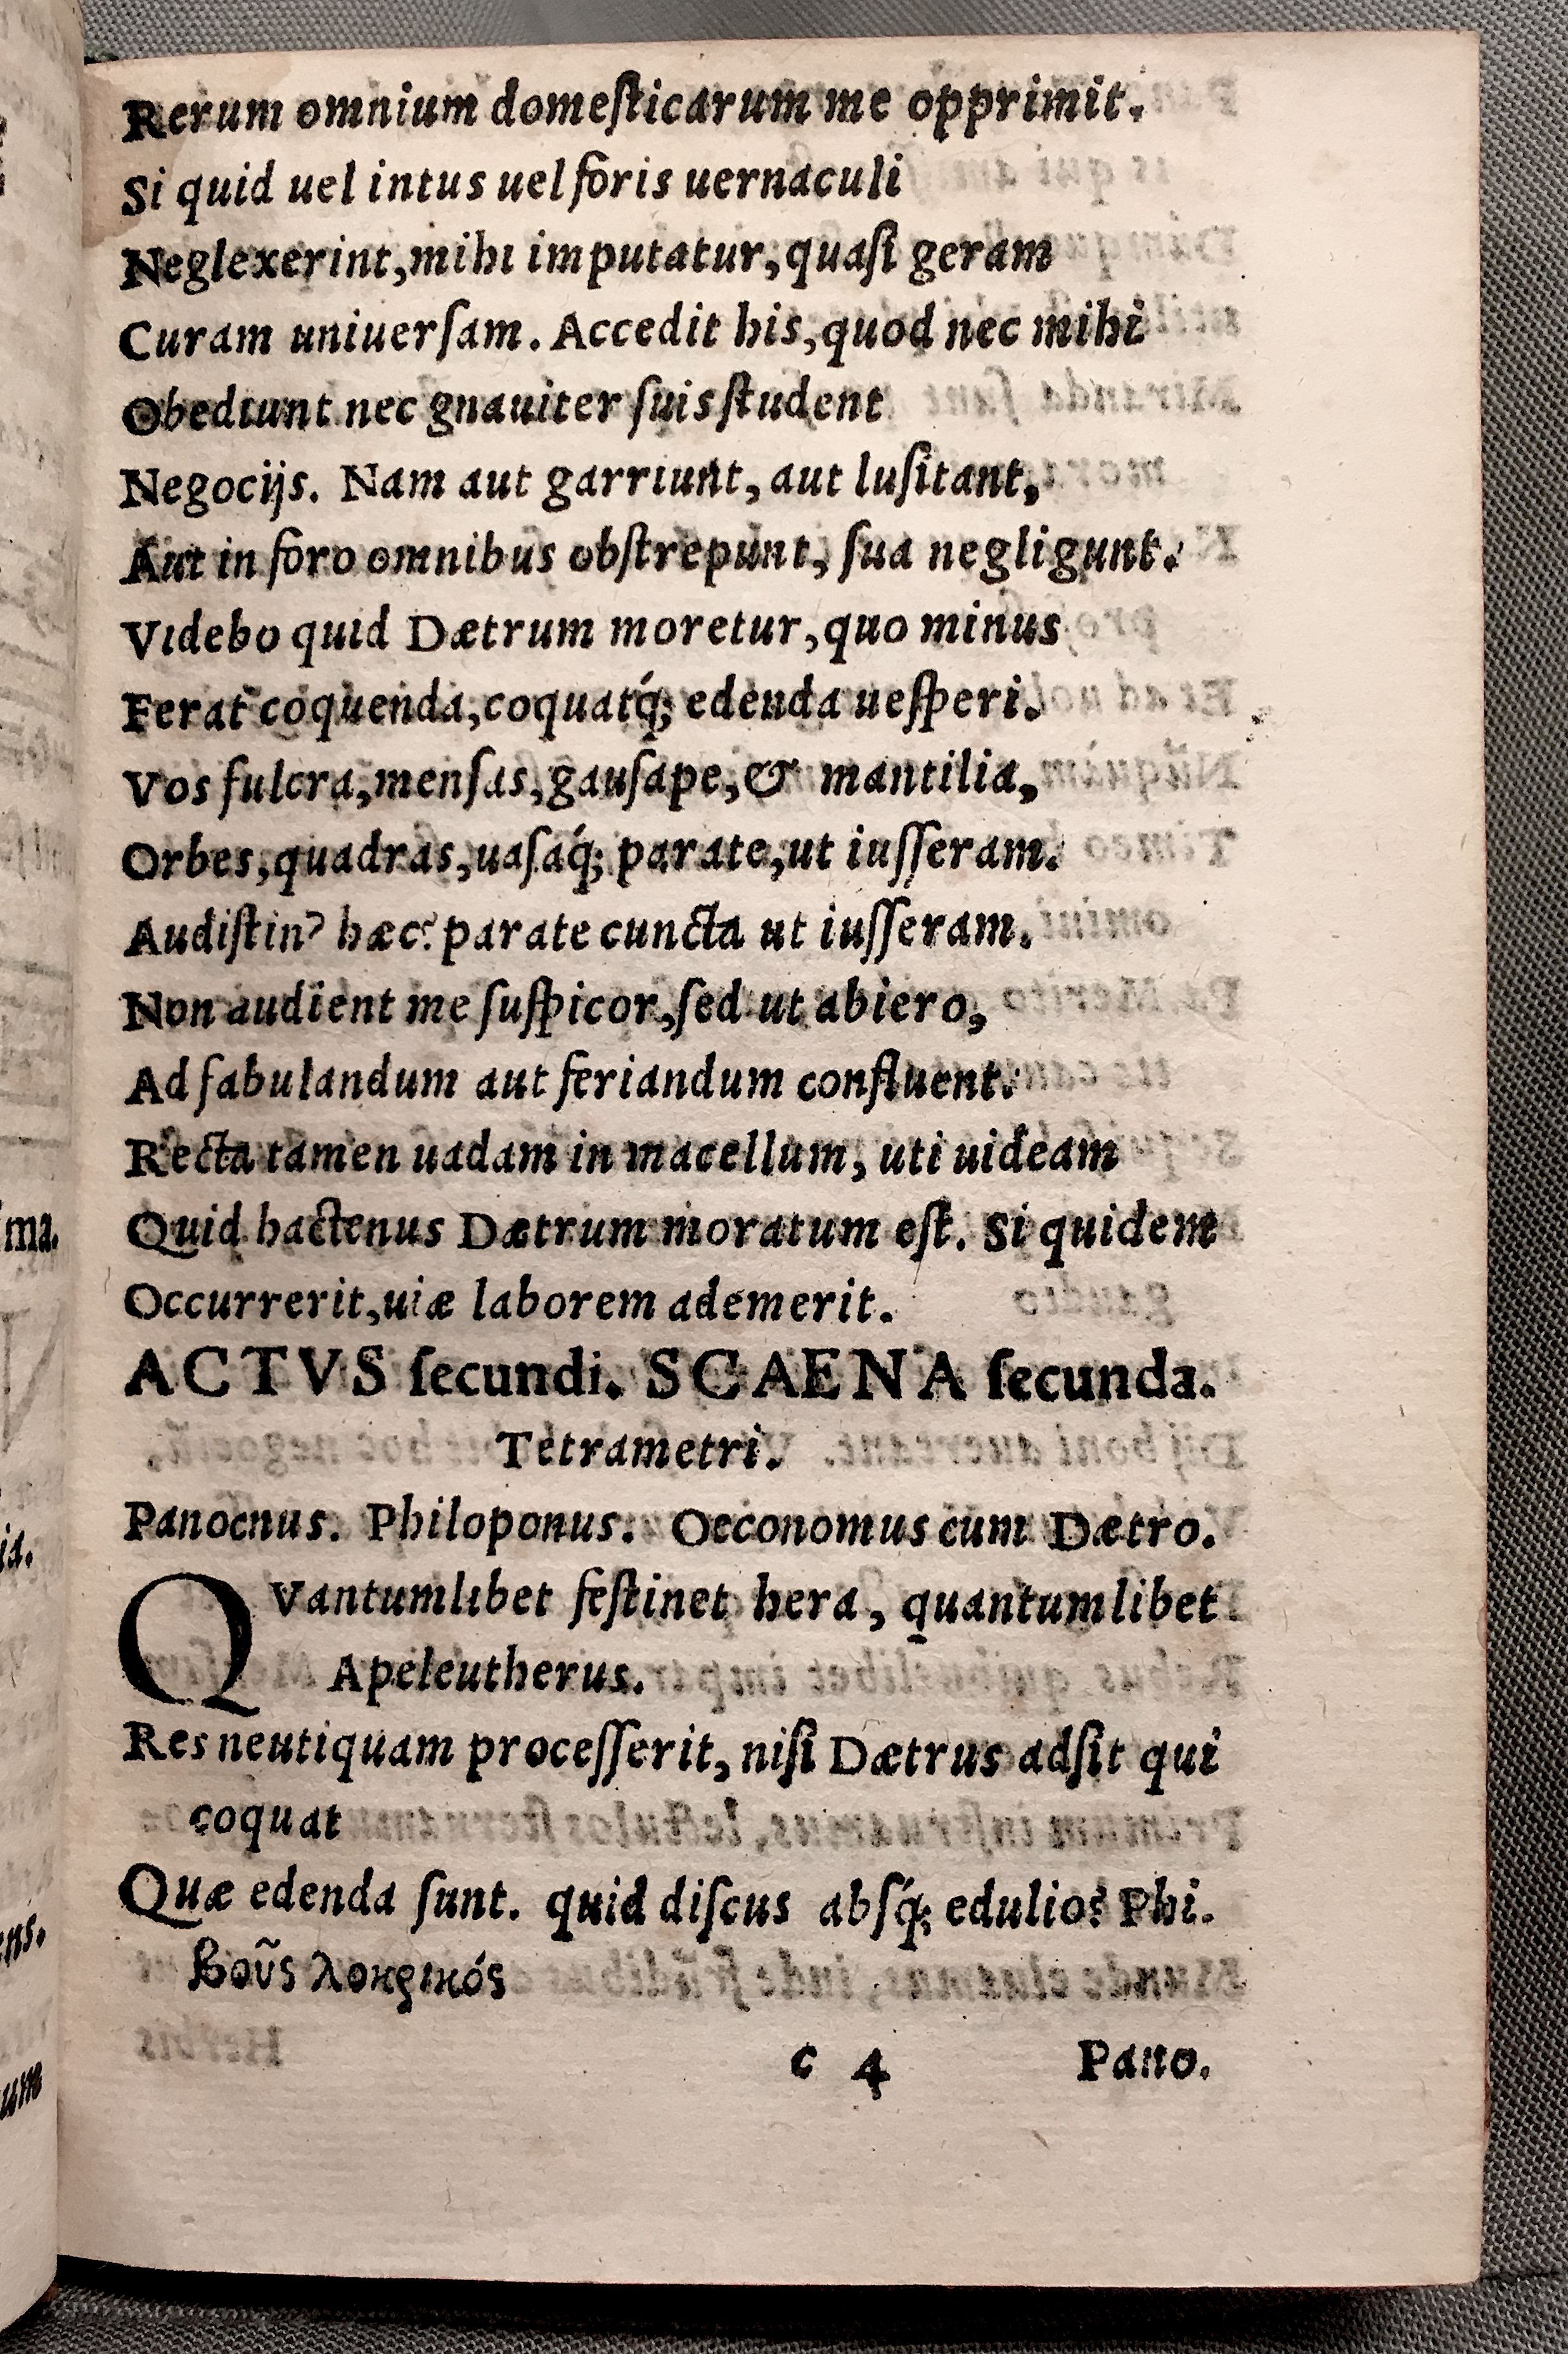 Rerum omnium domeſticarum me opprimit.
Si quid uel intus uel foris uernaculi
Neglexerint, mihi imputatur, quaſi geram
Curam uniuerſam. Accedit his, quod nec mihi
Obediunt nec gnauiter ſuis ſtudent
Negocijs. Nam aut garriunt, aut luſitant,
Aut in foro omnibus obſtrepunt, ſua negligunt.
Videbo quid Dætrum moretur, quo minus
Ferat coquenda, coquatq́; edenda ueſperi.
Vos fulcra, menſas, gauſape, & mantilia,
Orbes, quadras, uaſaq́; parate, ut iuſſeram.
Audiſtin? hæc? parate cuncta ut iuſſeram.
Non audient me ſuſpicor, ſed ut abiero,
Ad fabulandum aut feriandum confluent.
Recta tamen uadam in macellum, uti uideam
Quid hactenus Dætrum moratum eſt. Si quidem
Occurrerit, uiæ laborem ademerit.
ACTVS ſecundi. SCAENA ſecunda.
Tetrametri.
Panocnus. Philoponus. Oeconomus cum Dætro.
QVantumlibet feſtinet hera, quantumlibet
Apeleutherus.
Res neutiquam proceſſerit, niſi Dætrus adſit qui
coquat
Quæ edenda ſunt. quid diſcus abſq́; edulio? Phi.
βοῦς λοκρικός
c 4 Pano.